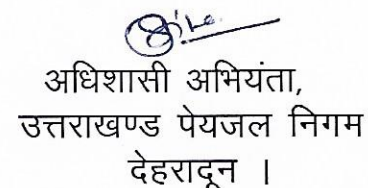 अधिशासी अभियंता,
उत्तराखण्ड पेयजल निगम
देहरादून ।